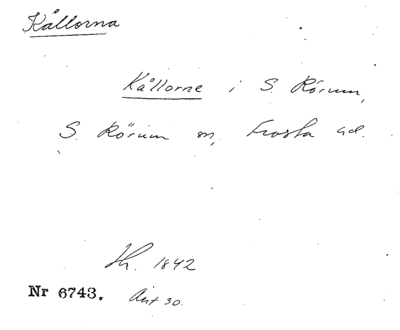 Kållorna
Kållorne i S. Rörum,
S. Rörum sn, Frosta hd.
Sk. 1842
Nr 6743. Ant 30.